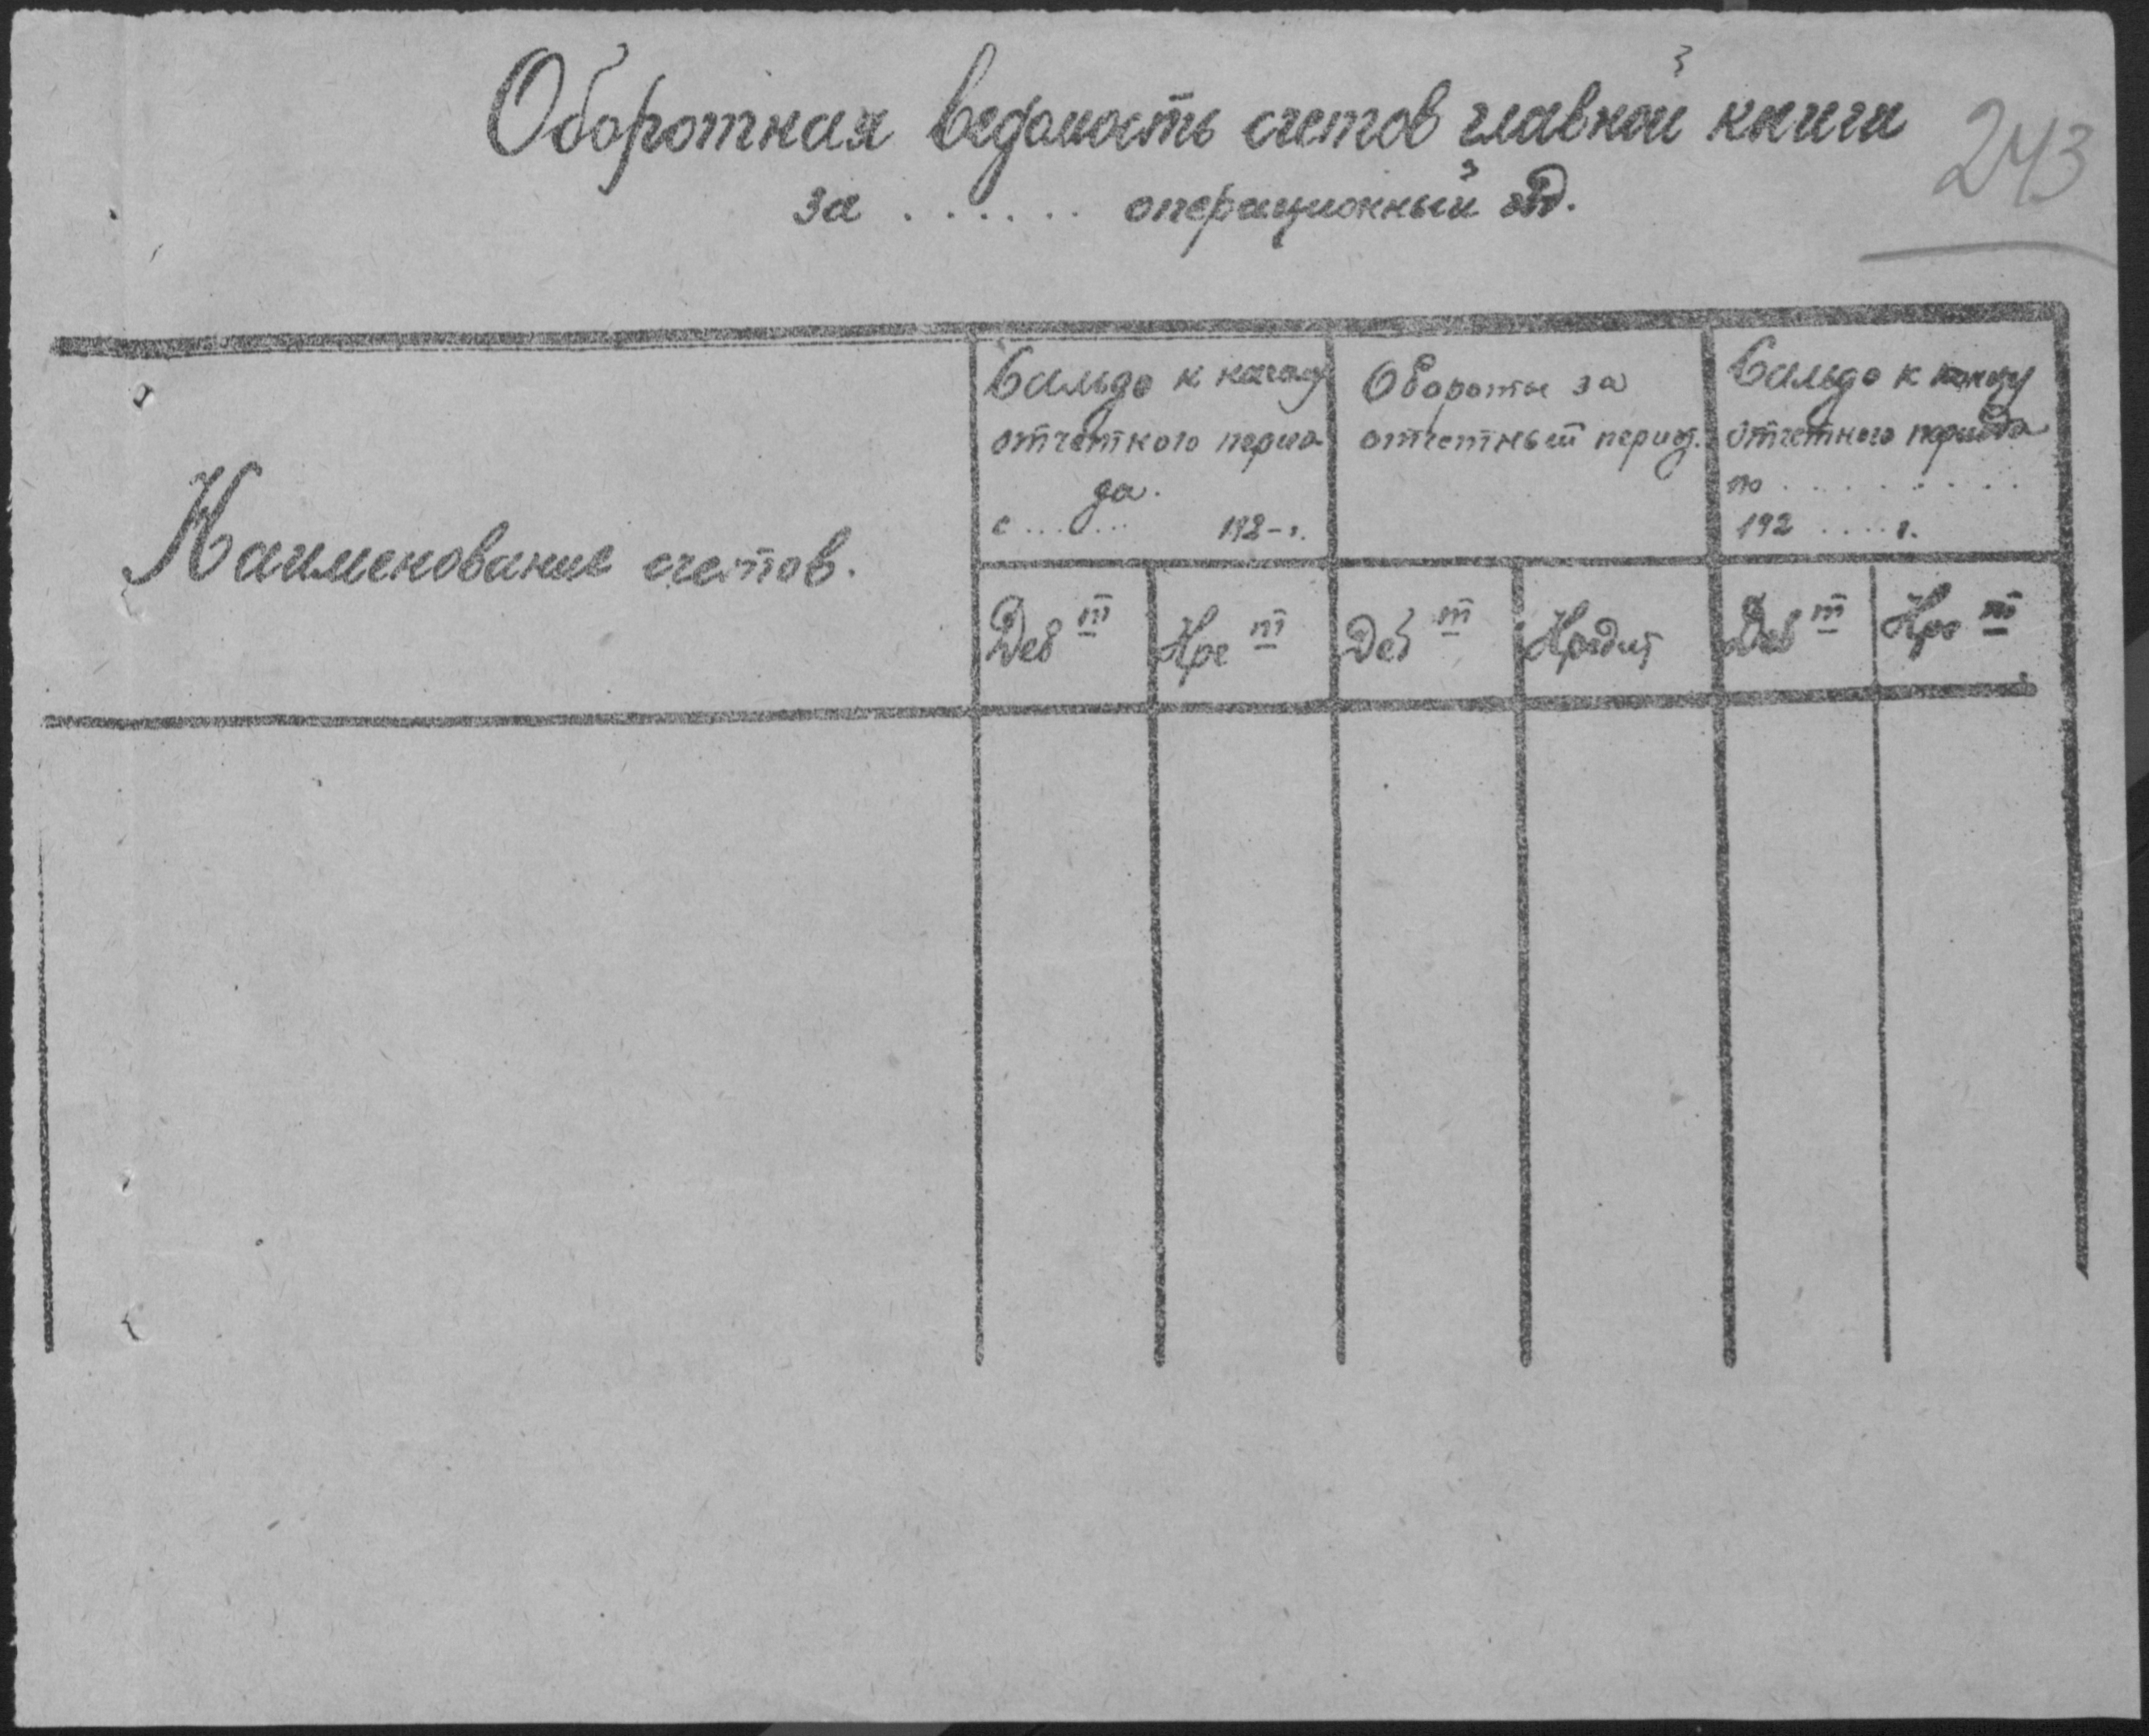 Оборотная ведомость счетов главной книги
243
за ...... операционный год.
Наименование счетов.
Сальдо к началу
отчетного перио
да.
с ....... 192-г.
Обороты за
отчетный период.
Сальдо к концу
отчетного периода
по .........
192 ....г.
Деб т
Кре т
Деб т
Кредит
Деб т
Кре т